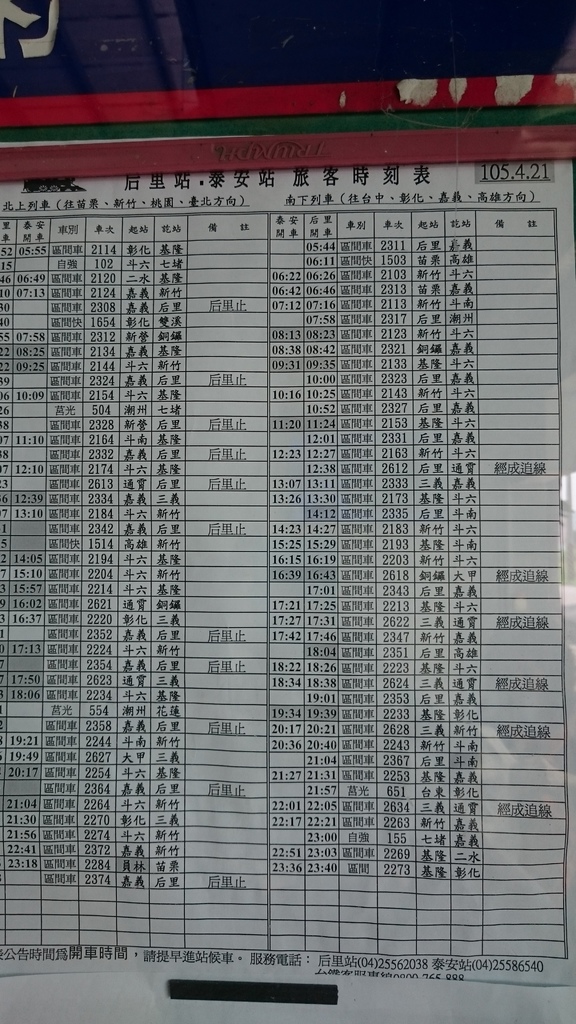 后里站.泰安站 旅客時刻表 105.4.21
北上列車（往苗栗、新竹、桃園、臺北方向）
泰安開車 車別 車次 起站 訖站 備註
05:55 區間車 2114 彰化 基隆
自強 102 斗六 七堵
06:49 區間車 2120 二水 基隆
07:13 區間車 2124 嘉義 新竹
區間車 2308 嘉義 后里 后里止
區間快 1654 彰化 雙溪
07:58 區間車 2312 新營 銅鑼
08:25 區間車 2134 嘉義 基隆
09:25 區間車 2144 斗六 新竹
區間車 2324 嘉義 后里 后里止
10:09 區間車 2154 斗六 基隆
莒光 504 潮州 七堵
區間車 2328 新營 后里 后里止
11:10 區間車 2164 斗南 基隆
區間車 2332 嘉義 后里 后里止
12:10 區間車 2174 斗六 基隆
區間車 2613 通霄 后里 后里止
12:39 區間車 2334 嘉義 三義
13:10 區間車 2184 斗六 新竹
區間車 2342 嘉義 后里 后里止
區間快 1514 高雄 新竹
14:05 區間車 2194 斗六 基隆
15:10 區間車 2204 斗六 新竹
15:57 區間車 2214 斗六 基隆
16:02 區間車 2621 通霄 銅鑼
16:37 區間車 2220 彰化 三義
區間車 2352 嘉義 后里 后里止
17:13 區間車 2224 斗六 新竹
區間車 2354 嘉義 后里 后里止
17:50 區間車 2623 通霄 三義
18:06 區間車 2234 斗六 基隆
莒光 554 潮州 花蓮
區間車 2358 嘉義 后里 后里止
19:21 區間車 2244 斗南 新竹
19:49 區間車 2627 大甲 三義
20:17 區間車 2254 斗六 基隆
區間車 2364 嘉義 后里 后里止
21:04 區間車 2264 斗六 新竹
21:30 區間車 2270 彰化 三義
21:56 區間車 2274 斗六 新竹
22:41 區間車 2372 嘉義 新竹
23:18 區間車 2284 員林 苗栗
區間車 2374 嘉義 后里 后里止
南下列車（往台中、彰化、嘉義、高雄方向）
泰安開車 后里開車 車別 車次 起站 訖站 備註
05:44 區間車 2311 后里 嘉義
06:11 區間快 1503 苗栗 高雄
06:22 06:26 區間車 2103 新竹 斗六
06:42 06:46 區間車 2313 苗栗 嘉義
07:12 07:16 區間車 2113 新竹 斗南
07:58 區間車 2317 后里 潮州
08:13 08:23 區間車 2123 新竹 斗六
08:38 08:42 區間車 2321 銅鑼 嘉義
09:31 09:35 區間車 2133 基隆 斗六
10:00 區間車 2323 后里 嘉義
10:16 10:25 區間車 2143 新竹 斗六
10:52 區間車 2327 后里 嘉義
11:20 11:24 區間車 2153 基隆 斗六
12:01 區間車 2331 后里 嘉義
12:23 12:27 區間車 2163 新竹 斗六
12:38 區間車 2612 后里 通霄 經成追線
13:07 13:11 區間車 2333 三義 嘉義
13:26 13:30 區間車 2173 基隆 斗六
14:12 區間車 2335 后里 斗南
14:23 14:27 區間車 2183 新竹 斗六
15:25 15:29 區間車 2193 基隆 斗南
16:15 16:19 區間車 2203 新竹 斗六
16:39 16:43 區間車 2618 銅鑼 大甲 經成追線
17:01 區間車 2343 后里 嘉義
17:21 17:25 區間車 2213 基隆 斗六
17:27 17:31 區間車 2622 三義 通霄 經成追線
17:42 17:46 區間車 2347 新竹 嘉義
18:04 區間車 2351 后里 高雄
18:22 18:26 區間車 2223 基隆 斗六
18:34 18:38 區間車 2624 三義 通霄 經成追線
19:01 區間車 2353 后里 嘉義
19:34 19:39 區間車 2233 基隆 彰化
20:17 20:21 區間車 2628 三義 新竹 經成追線
20:36 20:40 區間車 2243 新竹 斗南
21:04 區間車 2367 后里 斗南
21:27 21:31 區間車 2253 基隆 嘉義
21:57 莒光 651 台東 彰化
22:01 22:05 區間車 2634 三義 通霄 經成追線
22:17 22:21 區間車 2263 新竹 嘉義
23:00 自強 155 七堵 嘉義
22:51 23:03 區間車 2269 基隆 二水
23:36 23:40 區間 2273 基隆 彰化
公告時間爲開車時間，請提早進站候車。 服務電話： 后里站(04)25562038 泰安站(04)25586540